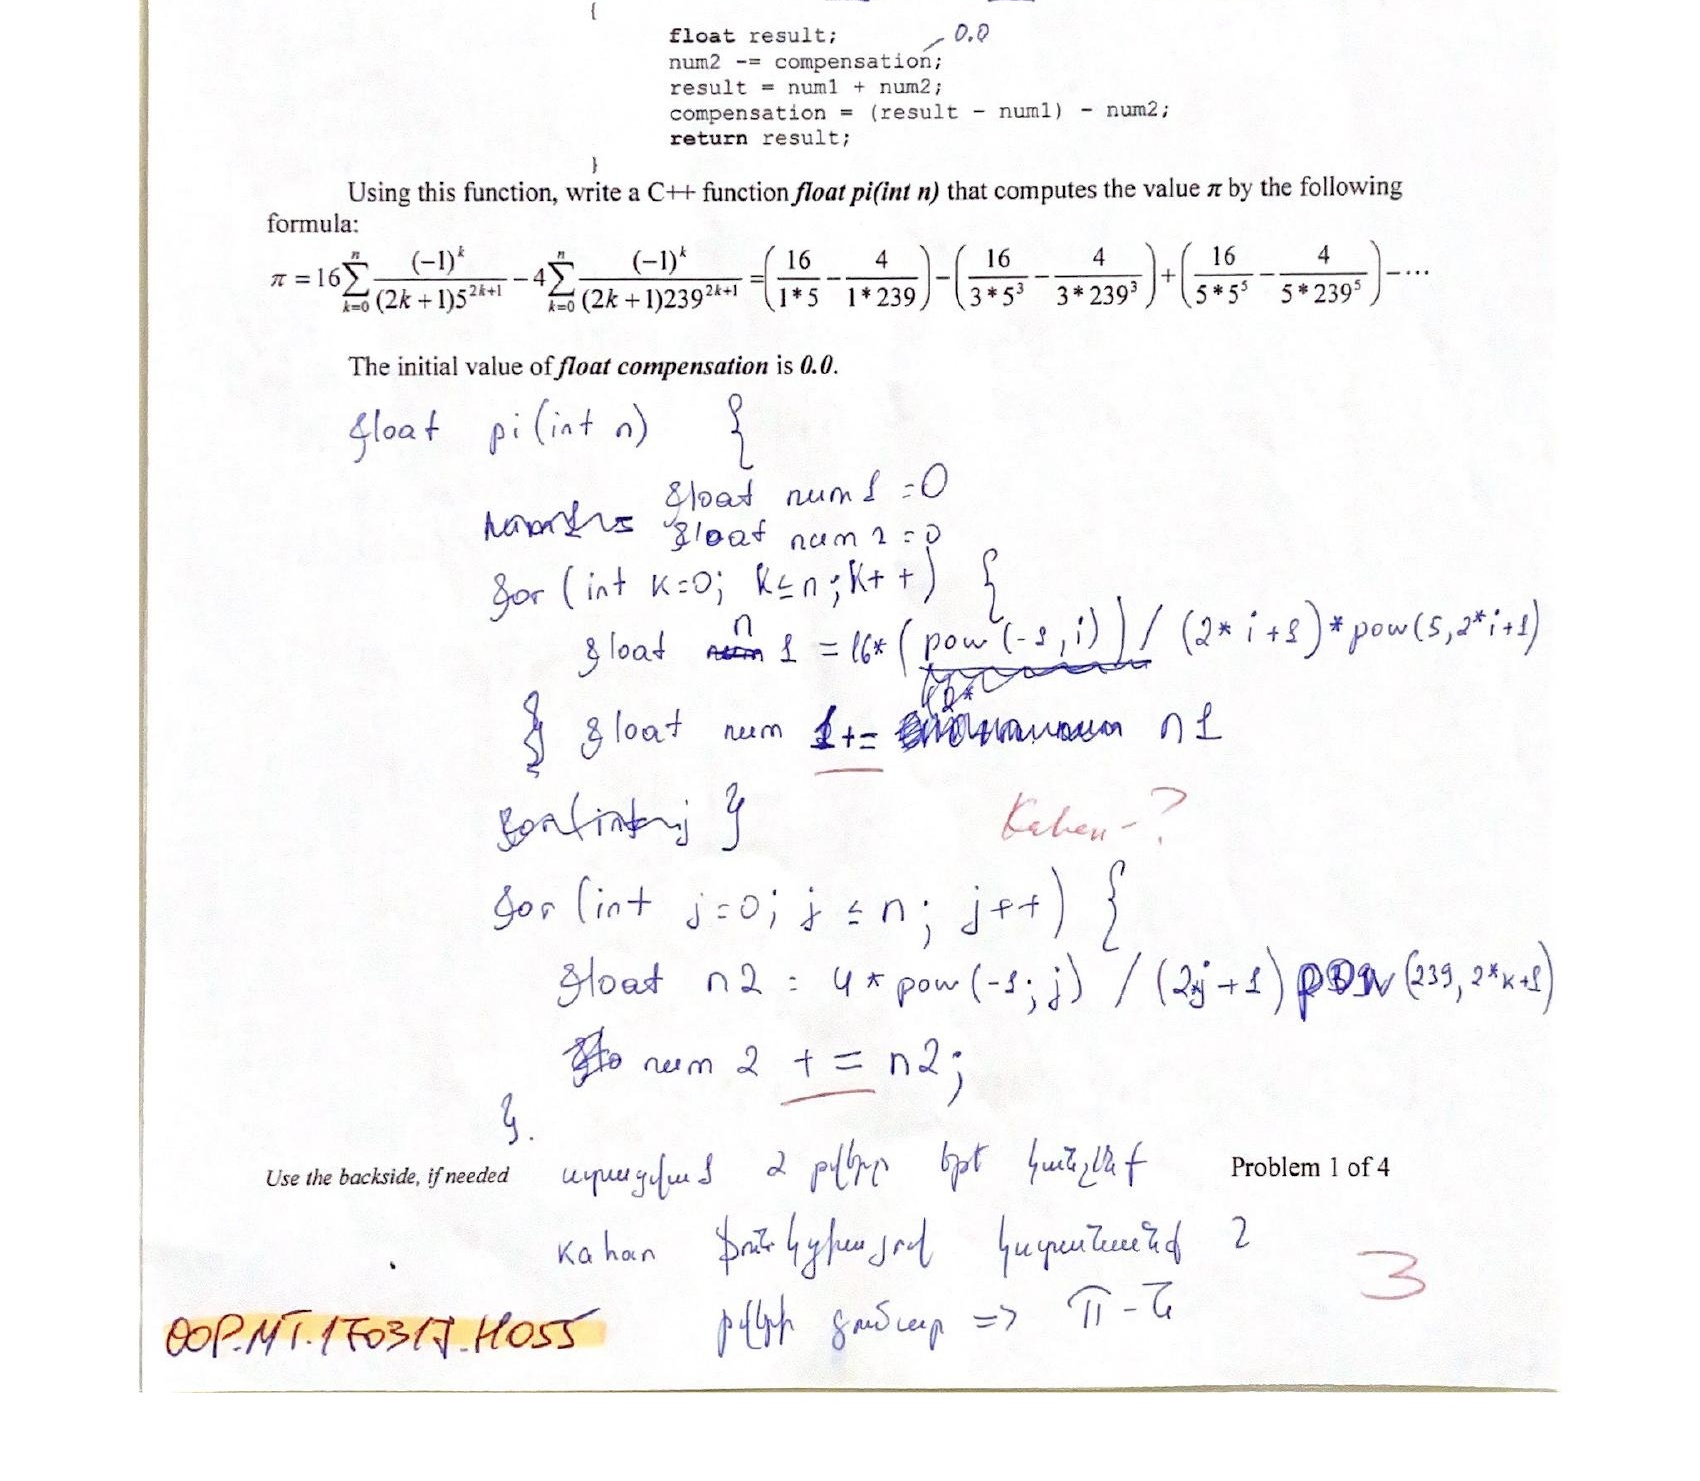 {
float result;
0.0
num2 -= compensation;
result = num1 + num2;
compensation = (result - num1) - num2;
return result;
}
Using this function, write a C++ function float pi(int n) that computes the value π by the following
formula:
π = 16 ∑_{k=0}^{n} (-1)^k / (2k+1)5^{2k+1} - 4 ∑_{k=0}^{n} (-1)^k / (2k+1)239^{2k+1} = (16/1*5 - 4/1*239) - (16/3*5^3 - 4/3*239^3) + (16/5*5^5 - 4/5*239^5) - ...
The initial value of float compensation is 0.0.
float pi(int n) {
float num 1 = 0
float num 2 = 0
for (int k=0; k≤n; k++) {
float n 1 = 16* (pow (-1, i)) / (2* i +1) * pow(5, 2*i+1)
} float num 1 += n1
}
Kahan - ?
for (int j=0; j ≤ n; j++) {
float n2 = 4 * pow (-1; j) / (2*j +1) pow (239, 2*k+1)
num 2 += n2;
}.
Use the backside, if needed
2 թվերը երբ կանչենք
Problem 1 of 4
Kahan ֆունկցիայով կստանանք 2
թվերի գումար => π - ն
3
OOP.MT.170317.H055